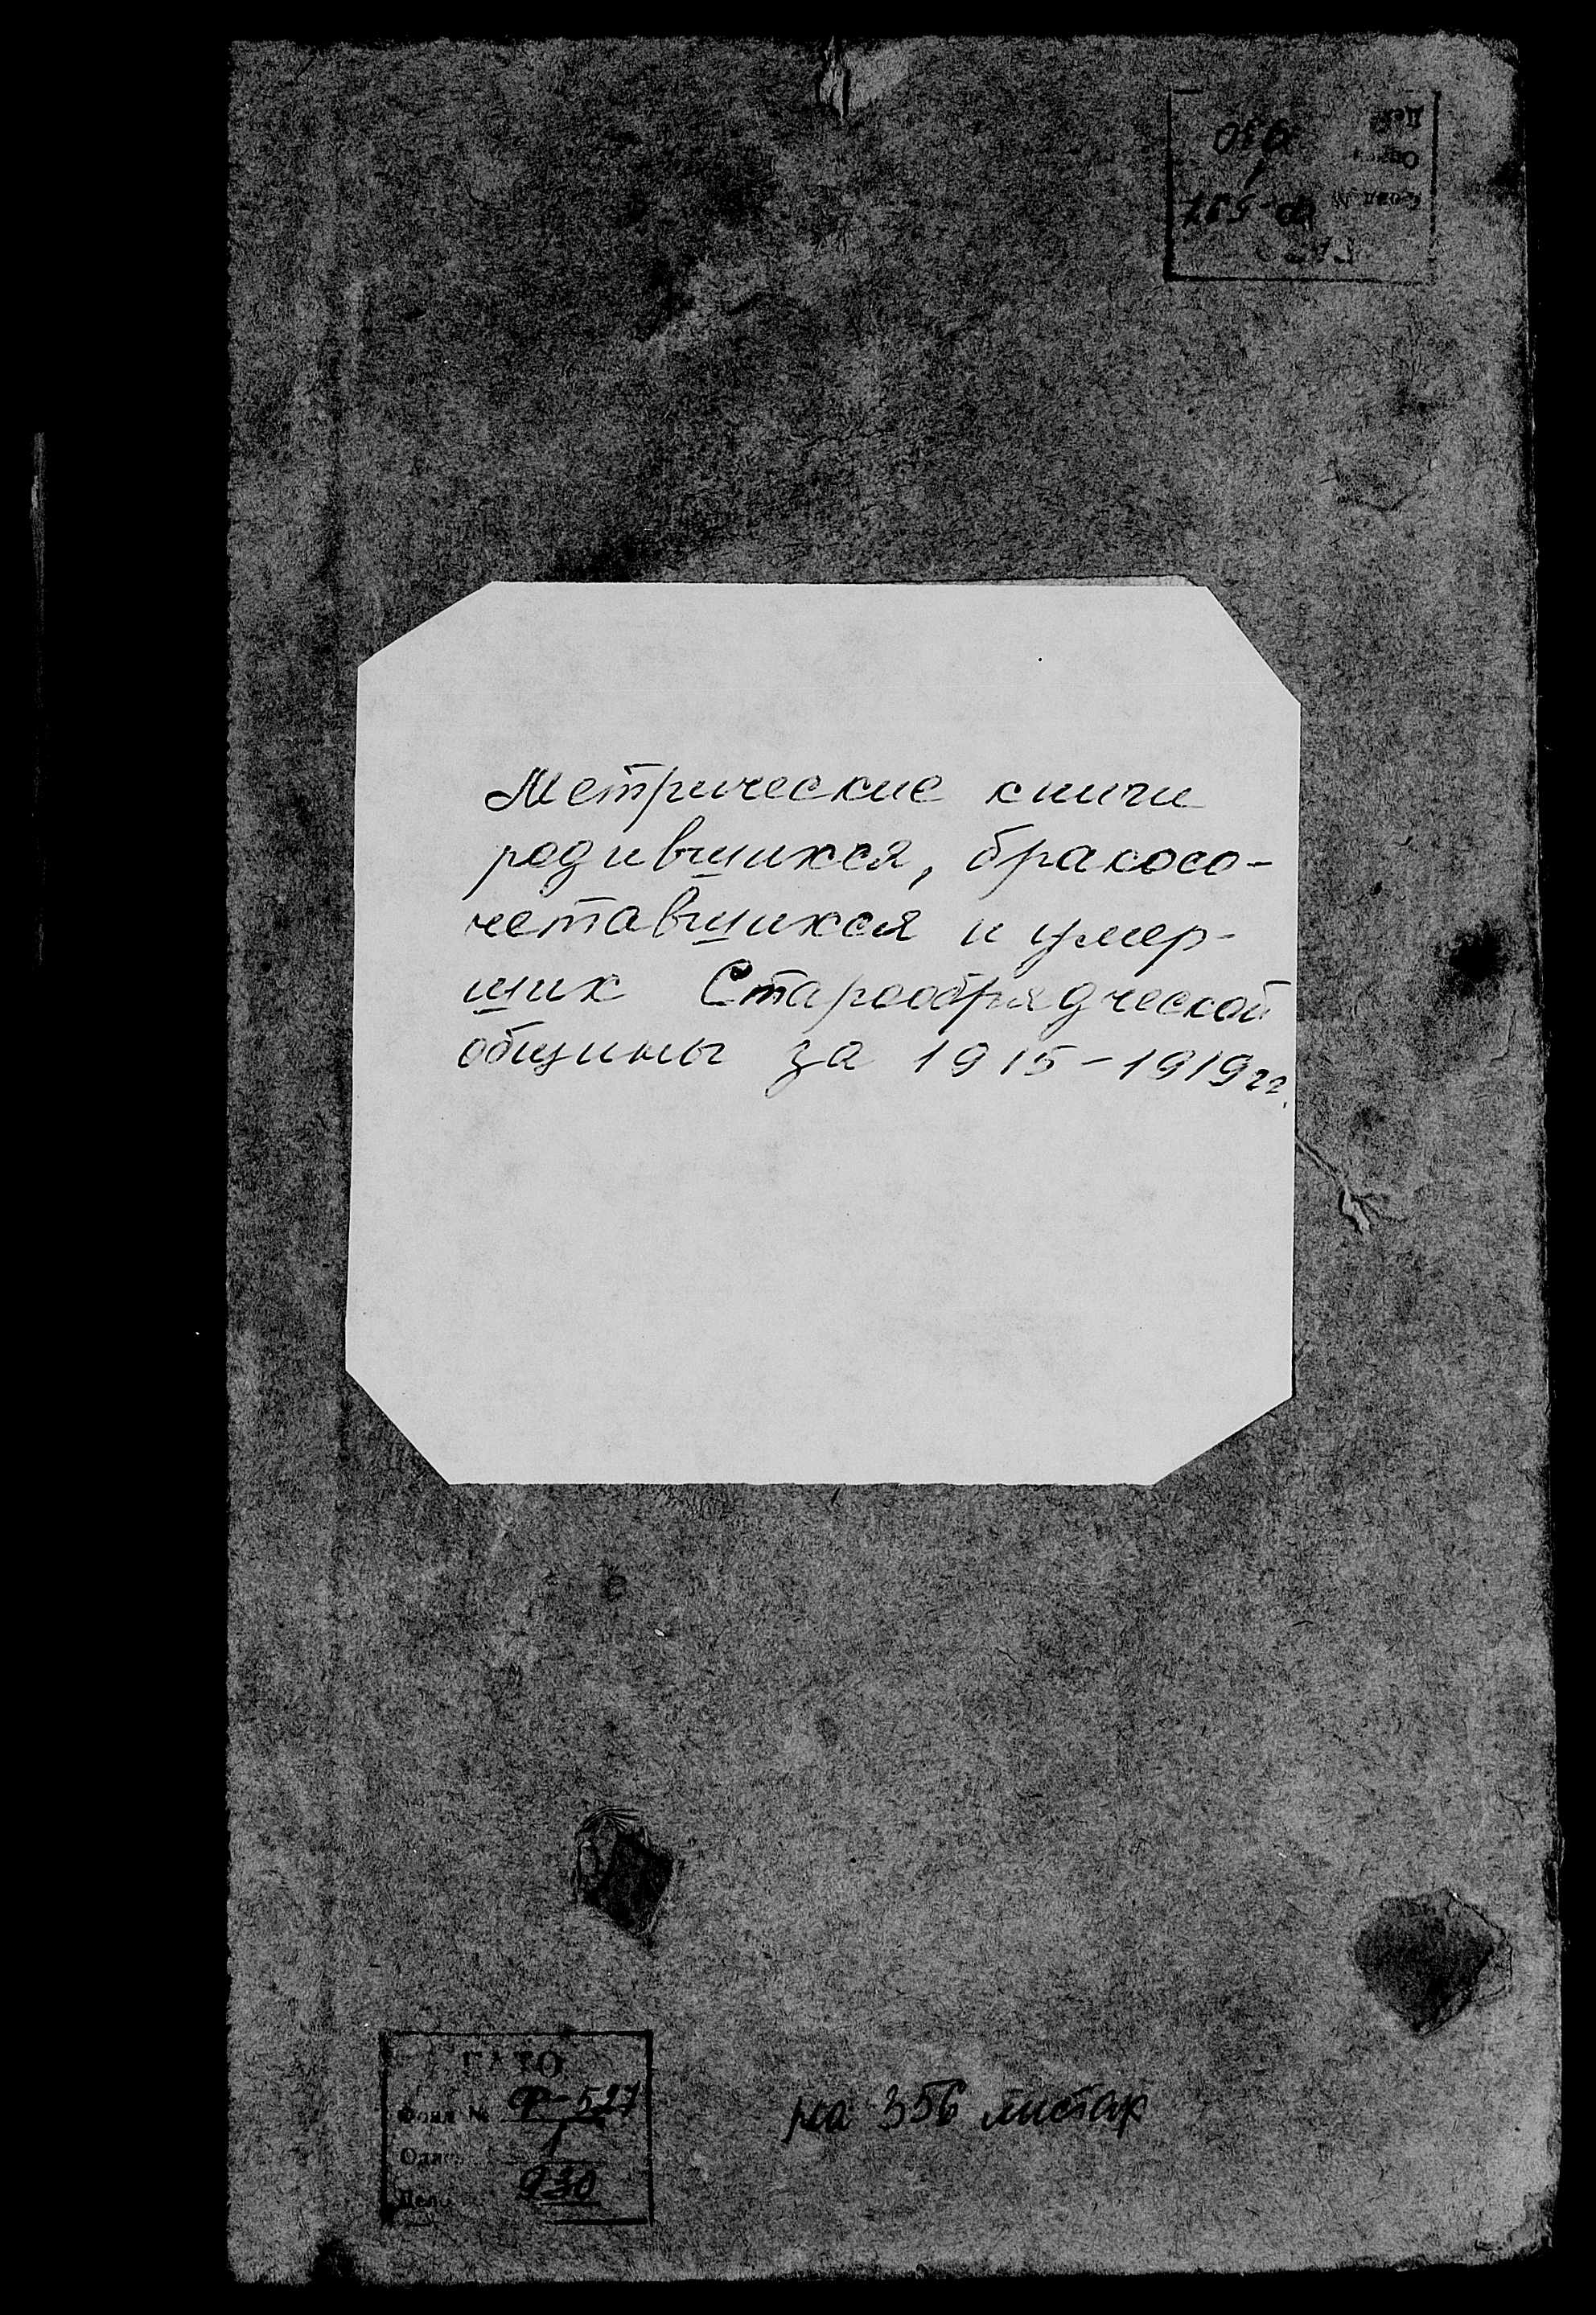 Метрические книги
родившихся, бракосо-
четавшихся и умер-
ших Старообрядческой
общины за 1915-1919гг.
ГАТО
Фонд № Ф-527
Опись 1
Дело 930
на 356 листах